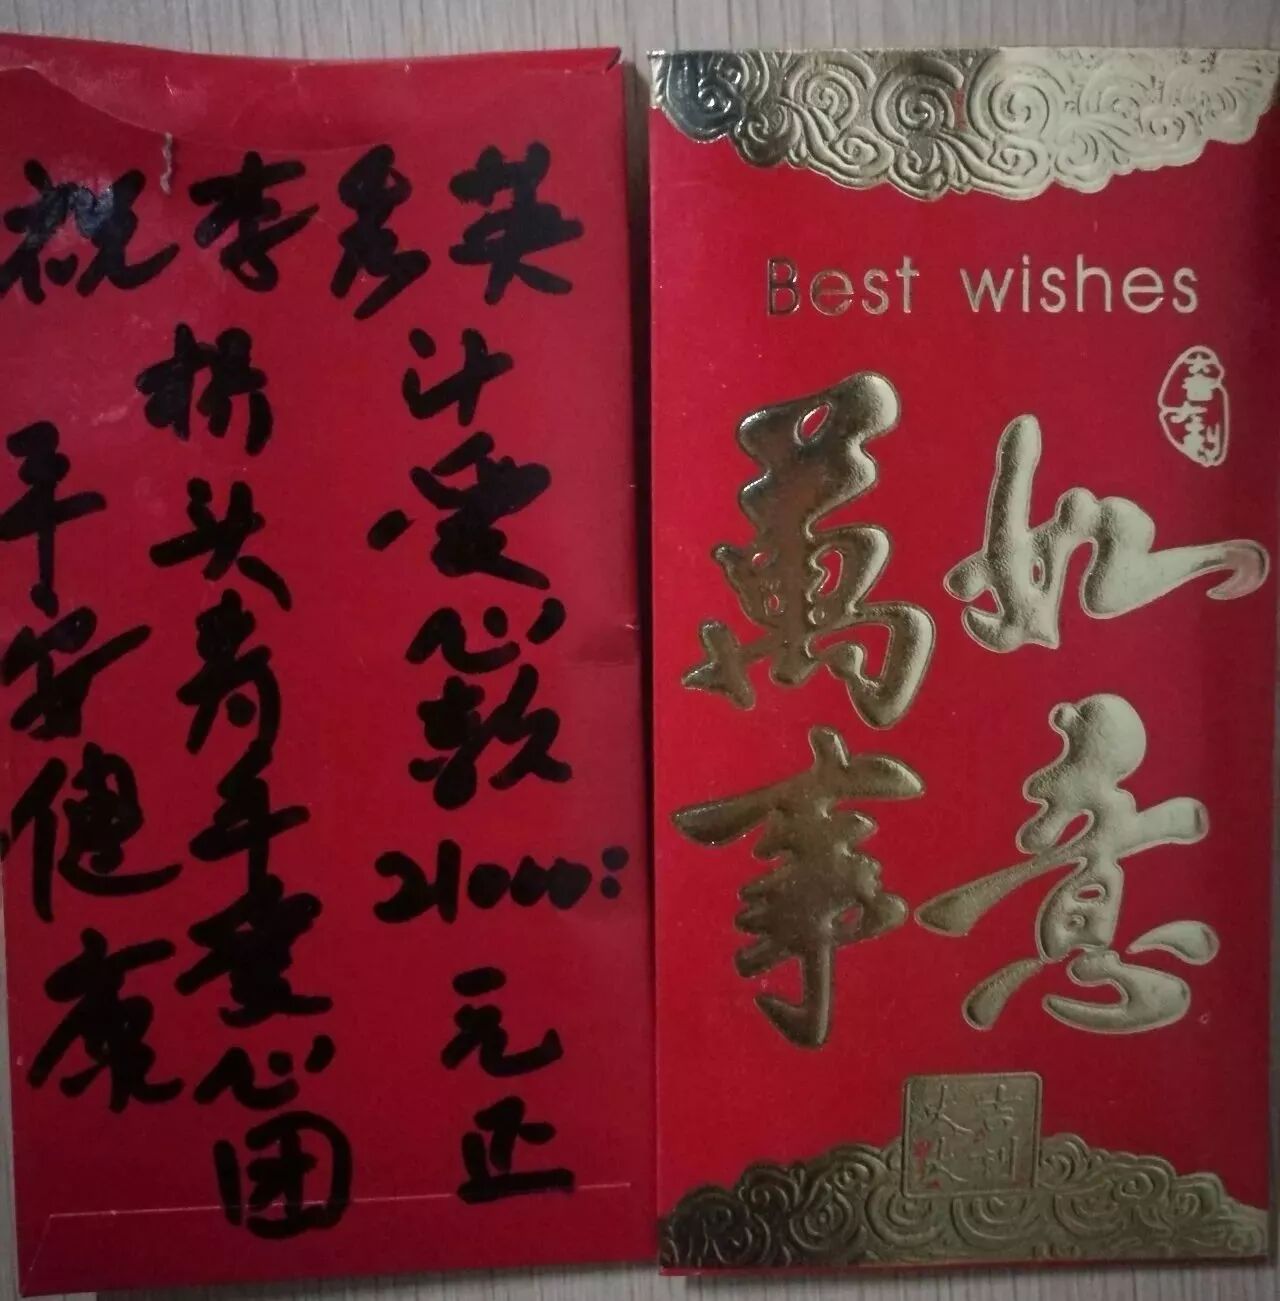 祝李彦英
平安健康
桥头青年爱心团
计爱心款21000:元正
Best wishes
萬事
如意
吉利
大大